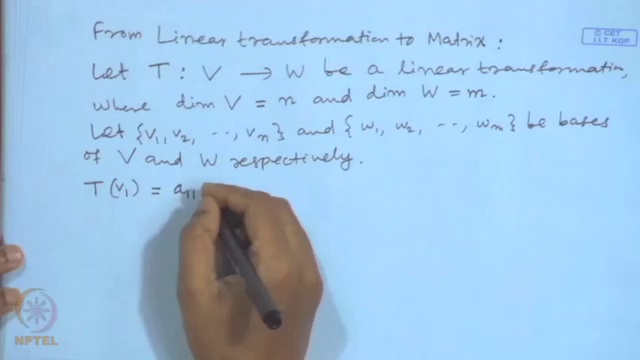 © CET
I.I.T. KGP
From Linear transformation to Matrix :
Let T : V → W be a linear transformation,
where dim V = n and dim W = m.
Let {v₁, v₂, ··, vₙ} and {w₁, w₂, ··, wₘ} be bases
of V and W respectively.
T(v₁) = a₁₁
NPTEL